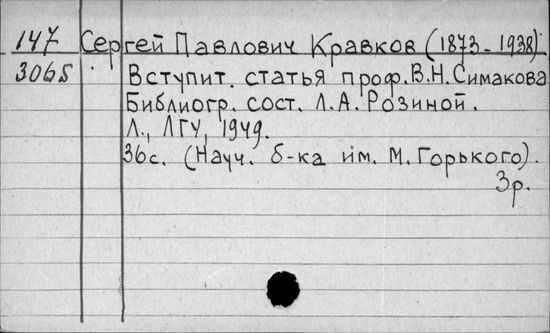 147 Сергей Павлович Кравков (1873-1938).
3065 Вступит. статья проф. В.Н. Симакова
Библиогр. сост. Л.А. Розиной.
Л., ЛГУ, 1949.
36с. (Науч. б-ка им. М. Горького).
3р.